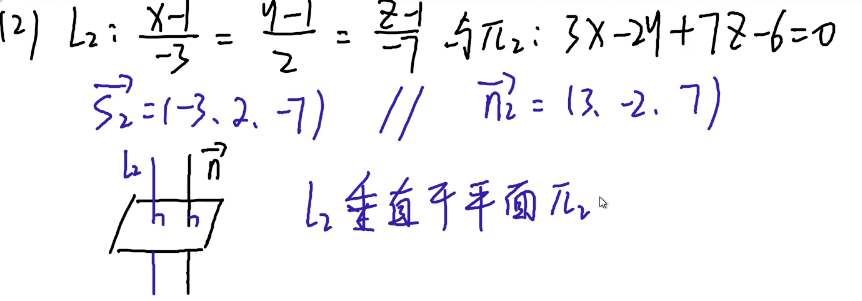 (2) L₂: (x-1)/-3 = (y-1)/2 = (z-1)/-7 与π₂: 3x-2y+7z-6=0
S₂⃗=(-3、2、-7) // n₂⃗=(3、-2、7)
L₂ n⃗
L₂垂直于平面π₂